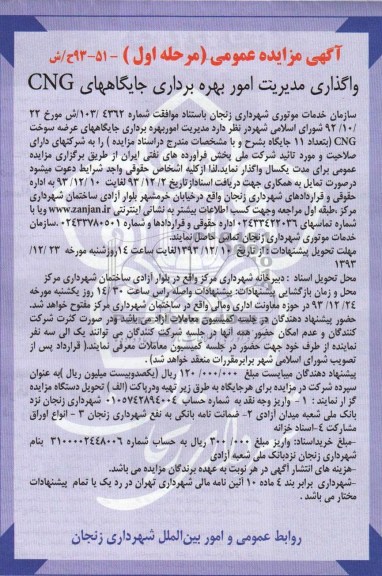 آگهی مزایده عمومی (مرحله اول) - ۵۱-۹۳ح/ش
واگذاری مدیریت امور بهره برداری جایگاههای CNG
سازمان خدمات موتوری شهرداری زنجان باستناد موافقت شماره ۴۳۶۲ /۱۰۳/ش مورخ ۲۲
/۱۰/ ۹۲ شورای اسلامی شهردر نظر دارد مدیریت اموربهره برداری جایگاههای عرضه سوخت
CNG (بتعداد ۱۱ جایگاه بشرح و با مشخصات مندرج دراسناد مزایده ) را به شرکتهای دارای
صلاحیت و مورد تائید شرکت ملی پخش فرآورده های نفتی ایران از طریق برگزاری مزایده
عمومی برای مدت یکسال واگذار نماید.لذا ازکلیه اشخاص حقوقی واجد شرایط دعوت میشود
درصورت تمایل به همکاری جهت دریافت اسناداز تاریخ ۹۳/۱۲/۲ لغایت ۹۳/۱۲/۱۰ به اداره
حقوقی و قراردادهای شهرداری زنجان واقع درخیابان خرمشهر بلوار آزادی ساختمان شهرداری
مرکز ،طبقه اول مراجعه وجهت کسب اطلاعات بیشتر به نشانی اینترنتی www.zanjan.ir ویا با
شماره تماسهای ۰۲۴۳۳۴۲۲۰۳۶ اداره حقوقی و قراردادها و شماره ۰۲۴۳۳۷۸۰۵۰۱ .سازمان
خدمات موتوری شهرداری زنجان تماس حاصل نمایند.
مهلت تحویل پیشنهادات : از تاریخ ۱۳۹۳/۱۲/۱۰لغایت ساعت ۱۴روزشنبه مورخه ۱۲/۲۳/
۱۳۹۳
محل تحویل اسناد : دبیرخانه شهرداری مرکز واقع در بلوار آزادی ساختمان شهرداری مرکز
محل و زمان بازگشایی پیشنهادات: پیشنهادات واصله راس ساعت ۱۴/۳۰ روز یکشنبه مورخه
۹۳/۱۲/۲۴ در حوزه معاونت اداری ومالی واقع در ساختمان شهرداری مرکز مفتوح خواهد شد.
حضور پیشنهاد دهندگان در جلسه کمیسیون معاملات آزاد می باشد و در صورت کثرت شرکت
کنندگان و عدم امکان حضور همه آنها در جلسه شرکت کنندگان می توانند یک الی سه نفر
نماینده از طرف خود جهت حضور در جلسه کمیسیون معاملات معرفی نمایند.( قرارداد پس از
تصویب شورای اسلامی شهر برابرمقررات منعقد خواهد شد) .
پیشنهاد دهندگان میبایست مبلغ ۱۲۰/۰۰۰/۰۰۰ ریال (یکصدوبیست میلیون ریال )به عنوان
سپرده شرکت در مزایده برای هرجایگاه به طرق زیر تهیه ودرپاکت (الف ) تحویل دستگاه مزایده
گزار نمایند : ۱ - واریز وجه نقد به شماره حساب ۰۱۰۵۷۴۲۸۹۴۰۰۴ شهرداری زنجان نزد
بانک ملی شعبه میدان آزادی ۲- ضمانت نامه بانکی به نفع شهرداری زنجان ۳ - انواع اوراق
مشارکت ۴-اسناد خزانه
-مبلغ خریداسناد: واریز مبلغ ۳۰۰/۰۰۰ ریال به حساب شماره ۳۱۰۰۰۰۲۴۴۸۰۰۶ بنام
شهرداری زنجان نزدبانک ملی شعبه آزادی
-هزینه های انتشار آگهی در هر نوبت به عهده برندگان مزایده می باشد.
-شهرداری برابر بند ۴ ماده ۱۰ آئین نامه مالی شهرداری تهران در رد یک یا تمام پیشنهادات
مختار می باشد .
روابط عمومی و امور بین‌الملل شهرداری زنجان